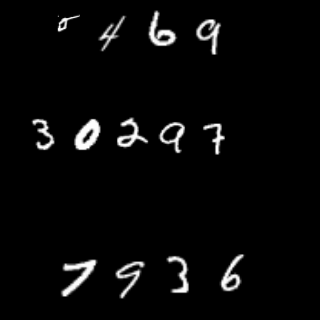 5 4 6 9
3 0 2 9 7
7 9 3 6